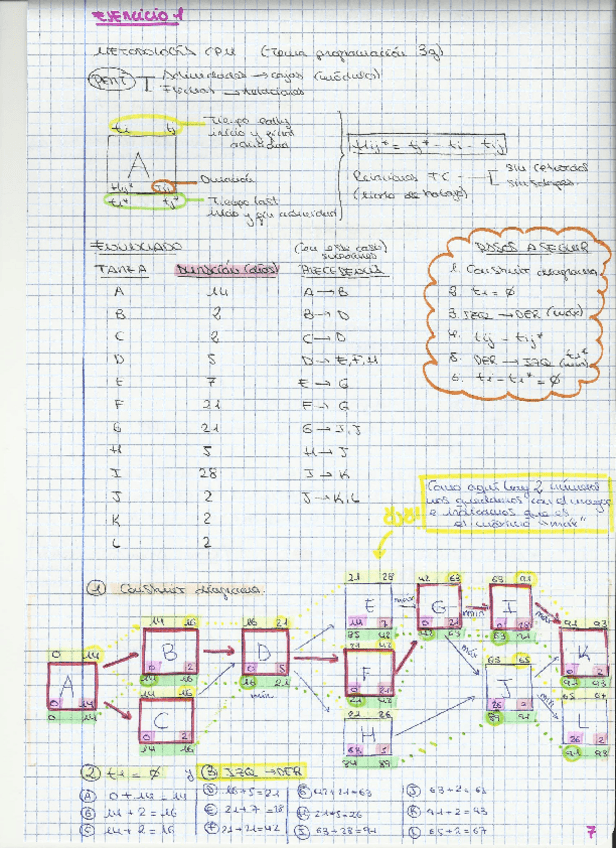 EJERCICIO 1
METODOLOGÍA CPM (Tema programación 3g)
PERT Actividades → cajas (módulos)
Flechas → relaciones
ti tj
Tiempo early
inicio y final
actividad
A
tij* tij
Duración
ti* tj*
Tiempo last
inicio y fin actividad
Htij* = tj* - ti - tij
TC
sin retardos
sin solapes
(diario de trabajo)
ENUNCIADO
(en este caso)
TAREA DURACIÓN (días) PRECEDENCIA
A 14 A → B
B 2 B → D
C 2 C → D
D 5 D → E, F, H
E 7 E → G
F 21 F → G
G 21 G → I, J
H 5 H → J
I 28 I → K
J 2 J → K, L
K 2
L 2
PASOS A SEGUIR
1. Construir diagrama
2. ti = Ø
3. IZQ → DER (máx)
4. tij - tij*
5. DER → IZQ (mín) ti*
6. ti - ti* = Ø
Como aquí hay 2 números
nos quedamos con el mayor
e indicamos que es
el camino "máx"
1 Construir diagrama.
0 14
A
0 14
0 14
14 16
B
0 2
14 16
14 16
C
0 2
14 16
16 21
D
0 5
16 21
mín
21 28
E
14 7
35 42
máx
F
0 21
21 42
21 26
H
63 5
84 89
42 63
G
0 21
42 63
mín
máx
63 91
I
0 28
63 91
máx
63 65
J
26 2
89 91
mín
91 93
K
0 2
91 93
65 67
L
26 2
91 93
2 ti = Ø y 3 IZQ → DER
A 0+14 = 14 D 16+5=21 G 42+21=63 J 63+2=65
B 14+2 = 16 E 21+7=28 H 21+5=26 K 91+2=93
C 14+2 = 16 F 21+21=42 I 63+28=91 L 65+2=67
7